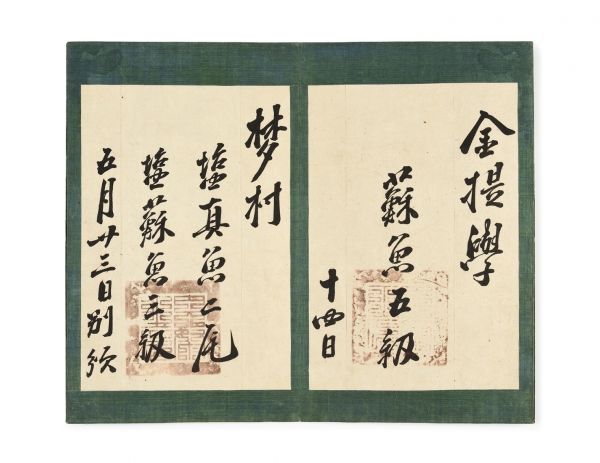 金提學
蘇魚五級
十四日
梦村
塩真魚二尾
塩蘇魚三級
五月卄三日別